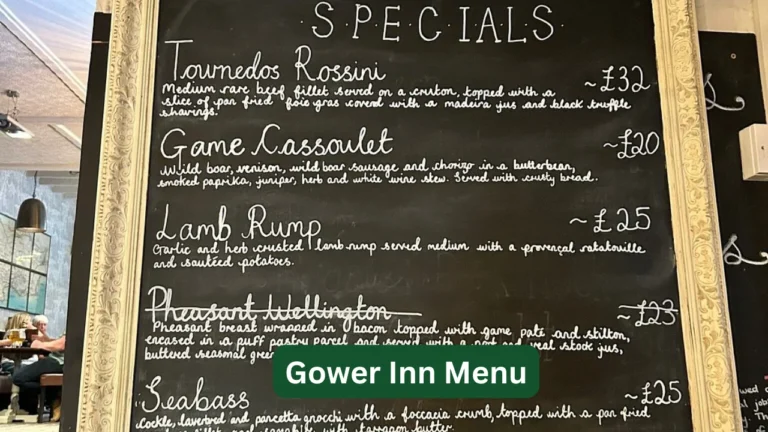 SPECIALS
Tournedos Rossini ~£32
Medium rare beef fillet served on a crouton, topped with a
slice of pan fried foie gras coverd with a madeira jus and black truffle
shavings.
Game Cassoulet ~£20
Wild boar, venison, wild boar sausage and chorizo in a butterbean,
smoked paprika, juniper, herb and white wine stew. Served with crusty bread.
Lamb Rump ~£25
Garlic and herb crusted lamb rump served medium with a provençal ratatouille
and sautéed potatoes.
Pheasant Wellington ~£23
Pheasant breast wrapped in bacon topped with game pate and stilton,
encased in a puff pastry parcel and served with a port and veal stock jus,
buttered seasonal
Gower Inn Menu
Seabass ~£25
Cockle, laverbread and pancetta gnocchi with a foccacia crumb, topped with a pan fried
samphire with tarragon butter.